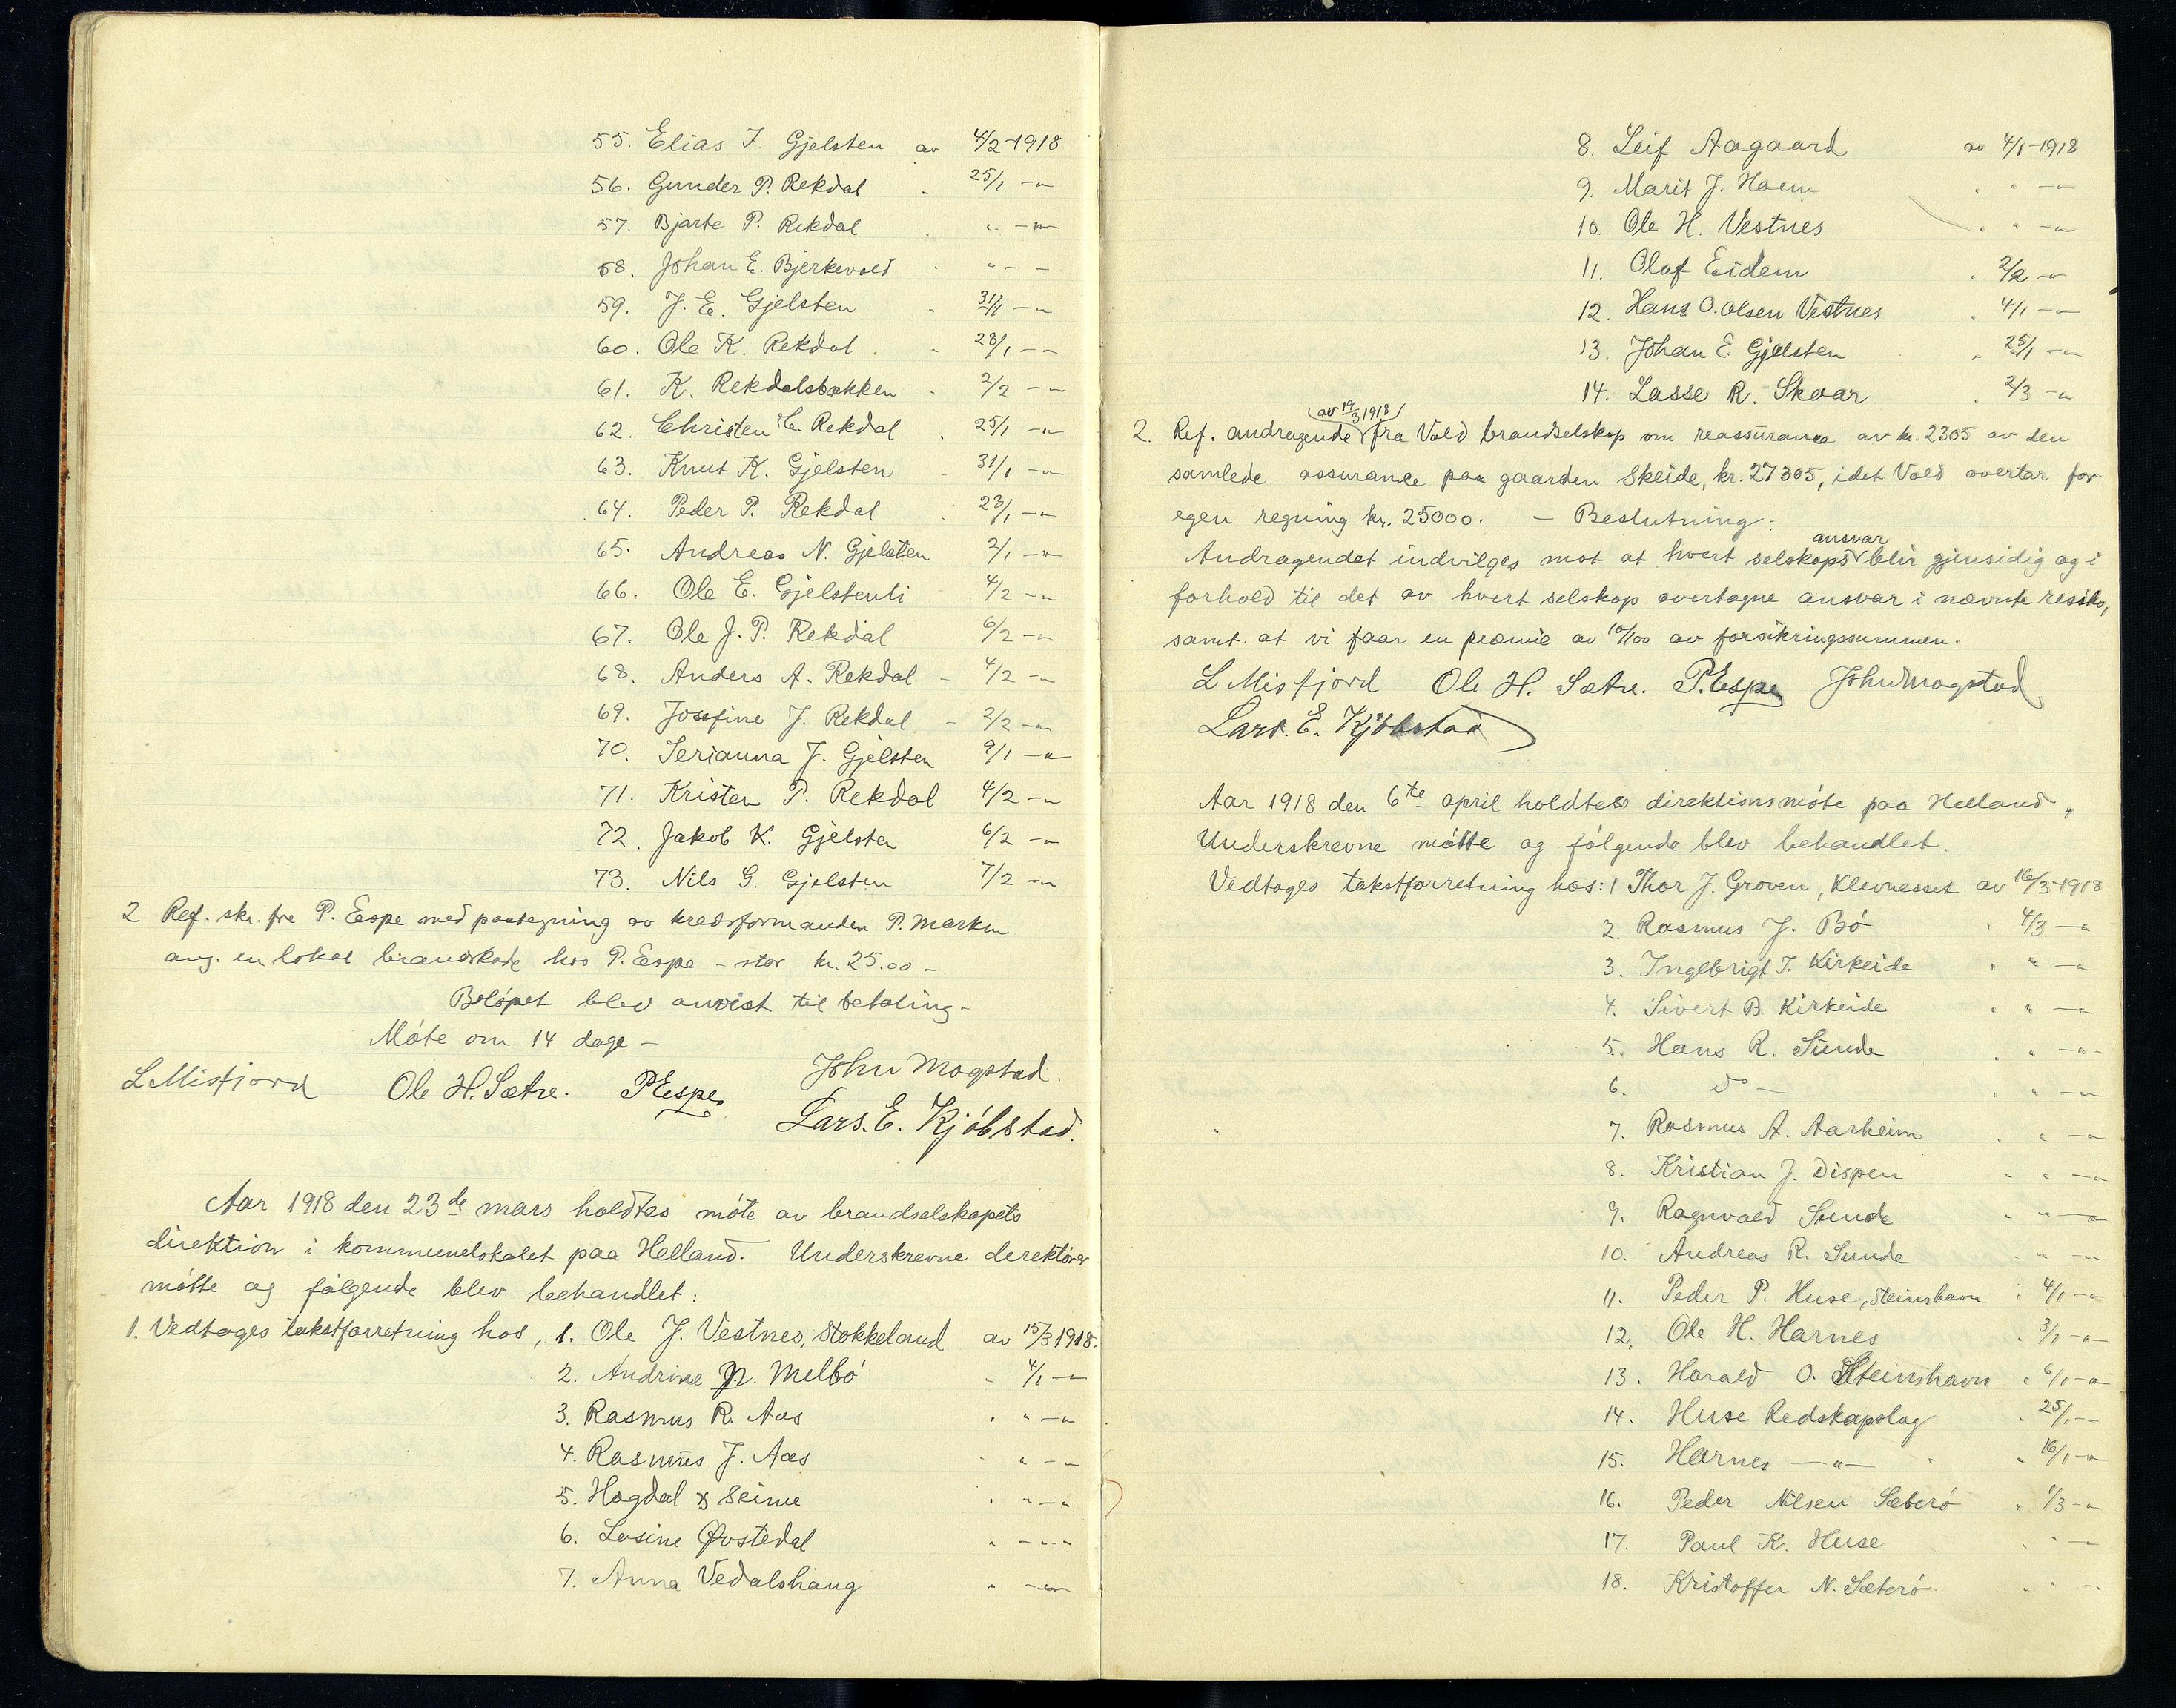 55. Elias J. Gjelsten av 4/2-1918
56. Gunder P. Rekdal " 25/1 -"-
57. Bjarte P. Rekdal " " -"-
58. Johan E. Bjerkevold " " - -
59. J. E. Gjelsten " 31/1 -"-
60. Ole K. Rekdal " 28/1 -"-
61. K. Rekdalsbakken " 2/2 -"-
62. Christen C. Rekdal " 25/1 -"-
63. Knut K. Gjelsten " 31/1 -"-
64. Peder P. Rekdal " 23/1 -"-
65. Andreas N. Gjelsten 2/1 -"-
66. Ole E. Gjelstenli 4/2 -"-
67. Ole J. P. Rekdal 6/2 -"-
68. Anders A. Rekdal - 4/2 -"-
69. Josefine J. Rekdal - 2/2 -"-
70. Serianna J. Gjelsten 9/1 -"-
71. Kristen P. Rekdal 4/2 -"-
72. Jakob K. Gjelsten 6/2 -"-
73. Nils G. Gjelsten 7/2 -"-
2 Ref. skr. fra P. Espe med paategning av kredsformanden P. Marken
ang. en lokal brandskade hos P. Espe - stor kr. 25.00 -
Beløpet blev anvist til betaling -
Møte om 14 dage -
L Misfjord Ole H. Sætre. P Espe John Mogstad.
Lars. E. Kjöbstad.
Aar 1918 den 23de mars holdtes møte av brandselskapets
direktion i kommunelokalet paa Helland. Underskrevne derektører
møtte og følgende blev behandlet:
1. Vedtages takstforretning hos, 1. Ole J. Vestnes, Stokkeland av 15/3 1918.
2. Andrine N. Melbø " 4/1 -"-
3. Rasmus R. Aas " " -"-
4. Rasmus J. Aas " " -"-
5. Hagdal & Seime " " -"-
6. Losine Øvstedal " -"-
7. Anna Vedalshaug " -"-
8. Leif Aagaard av 4/1-1918
9. Marit J. Haem " " -"-
10. Ole H. Vestnes " " -"-
11. Olaf Eidem " 2/2 -"-
12. Hans O. Olsen Vestnes " 4/1 -"-
13. Johan E. Gjelsten " 25/1 -"-
14. Lasse R. Skaar " 2/3 -"-
(av 19/3 1918)
2. Ref. andragende fra Vold brandselskap om reassurance av kr. 2305 av den
samlede assurance paa gaarden Skeide, kr. 27305, idet Vold overtar for
egen regning kr. 25000. - Beslutning:
ansvar
Andragendet indvilges mot at hvert selskaps blir gjensidig og i
forhold til det av hvert selskap overtagne ansvar i nævnte resiko,
samt at vi faar en præmie av 10/100 av forsikringssummen.
L Misfjord Ole H. Sætre. P. Espe John Mogstad
Lars. E. Kjöbstad
Aar 1918 den 6te april holdtes direktionsmøte paa Helland.
Underskrevne møtte og følgende blev behandlet.
Vedtages takstforretning hos: 1 Thor J. Groven, Klevneset av 16/3-1918
2. Rasmus J. Bø " 4/3 -"-
3. Ingebrigt I. Kirkeide " " -"-
4. Sivert B. Kirkeide " " -"-
5. Hans R. Sunde " " -"-
6. do - " " -"-
7. Rasmus A. Aarheim " " -"-
8. Kristian J. Dispen " " -"-
9. Ragnvald Sunde " " -"-
10. Andreas R. Sunde " " -"-
11. Peder P. Huse, Steinshavn " 4/1 -"-
12. Ole H. Harnes " 3/1 -"-
13. Harald O. Steinshavn " 6/1 -"-
14. Huse Redskapslag " 25/1 -"-
15. Harnes -"- " 16/1 -"-
16. Peder Nilsen Sæterø " 1/3 -"-
17. Paul K. Huse " " -"-
18. Kristoffer N. Sæterø " " -"-